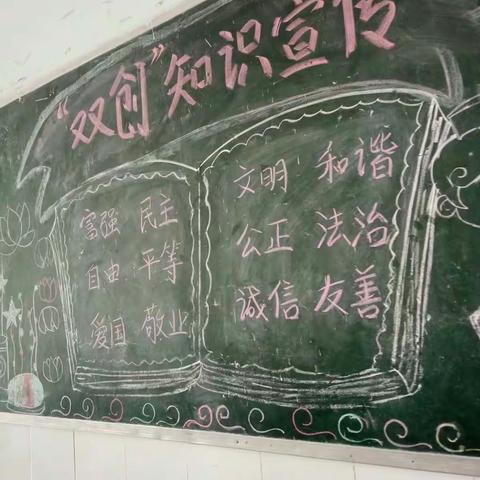 “双创”知识宣传
富强 民主
自由 平等
爱国 敬业
文明 和谐
公正 法治
诚信 友善